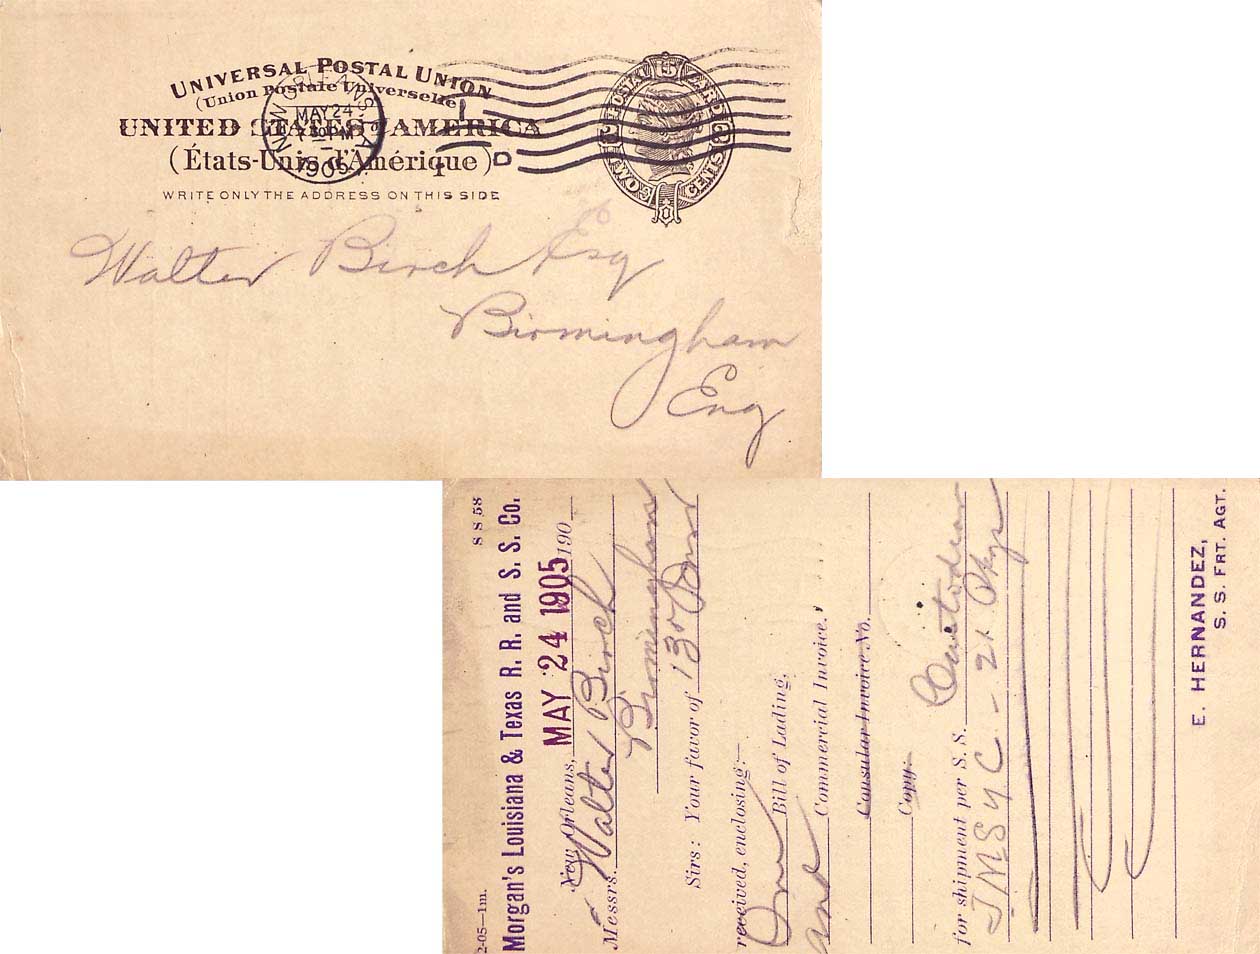 UNIVERSAL POSTAL UNION
(Union Postale Universelle)
UNITED STATES AMERICA
(États-Unis d'Amérique)
WRITE ONLY THE ADDRESS ON THIS SIDE
NEW ORLEANS, LA
MAY 24
7 30 PM
1905
POSTAL CARD
TWO CENTS
Walter Birch Esq
Birmingham
Eng
2-05—1m. 8 8 58
Morgan's Louisiana & Texas R. R. and S. S. Co.
MAY 24 1905
New Orleans, 190
Messrs. Walter Birch
Birmingham
Sirs: Your favor of 13
received, enclosing:—
One Bill of Lading,
and Commercial Invoice,
Consular Invoice No.
Copy.
for shipment per S. S.
J M S Y C. - 21 Pkgs
E. HERNANDEZ,
S. S. FRT. AGT.